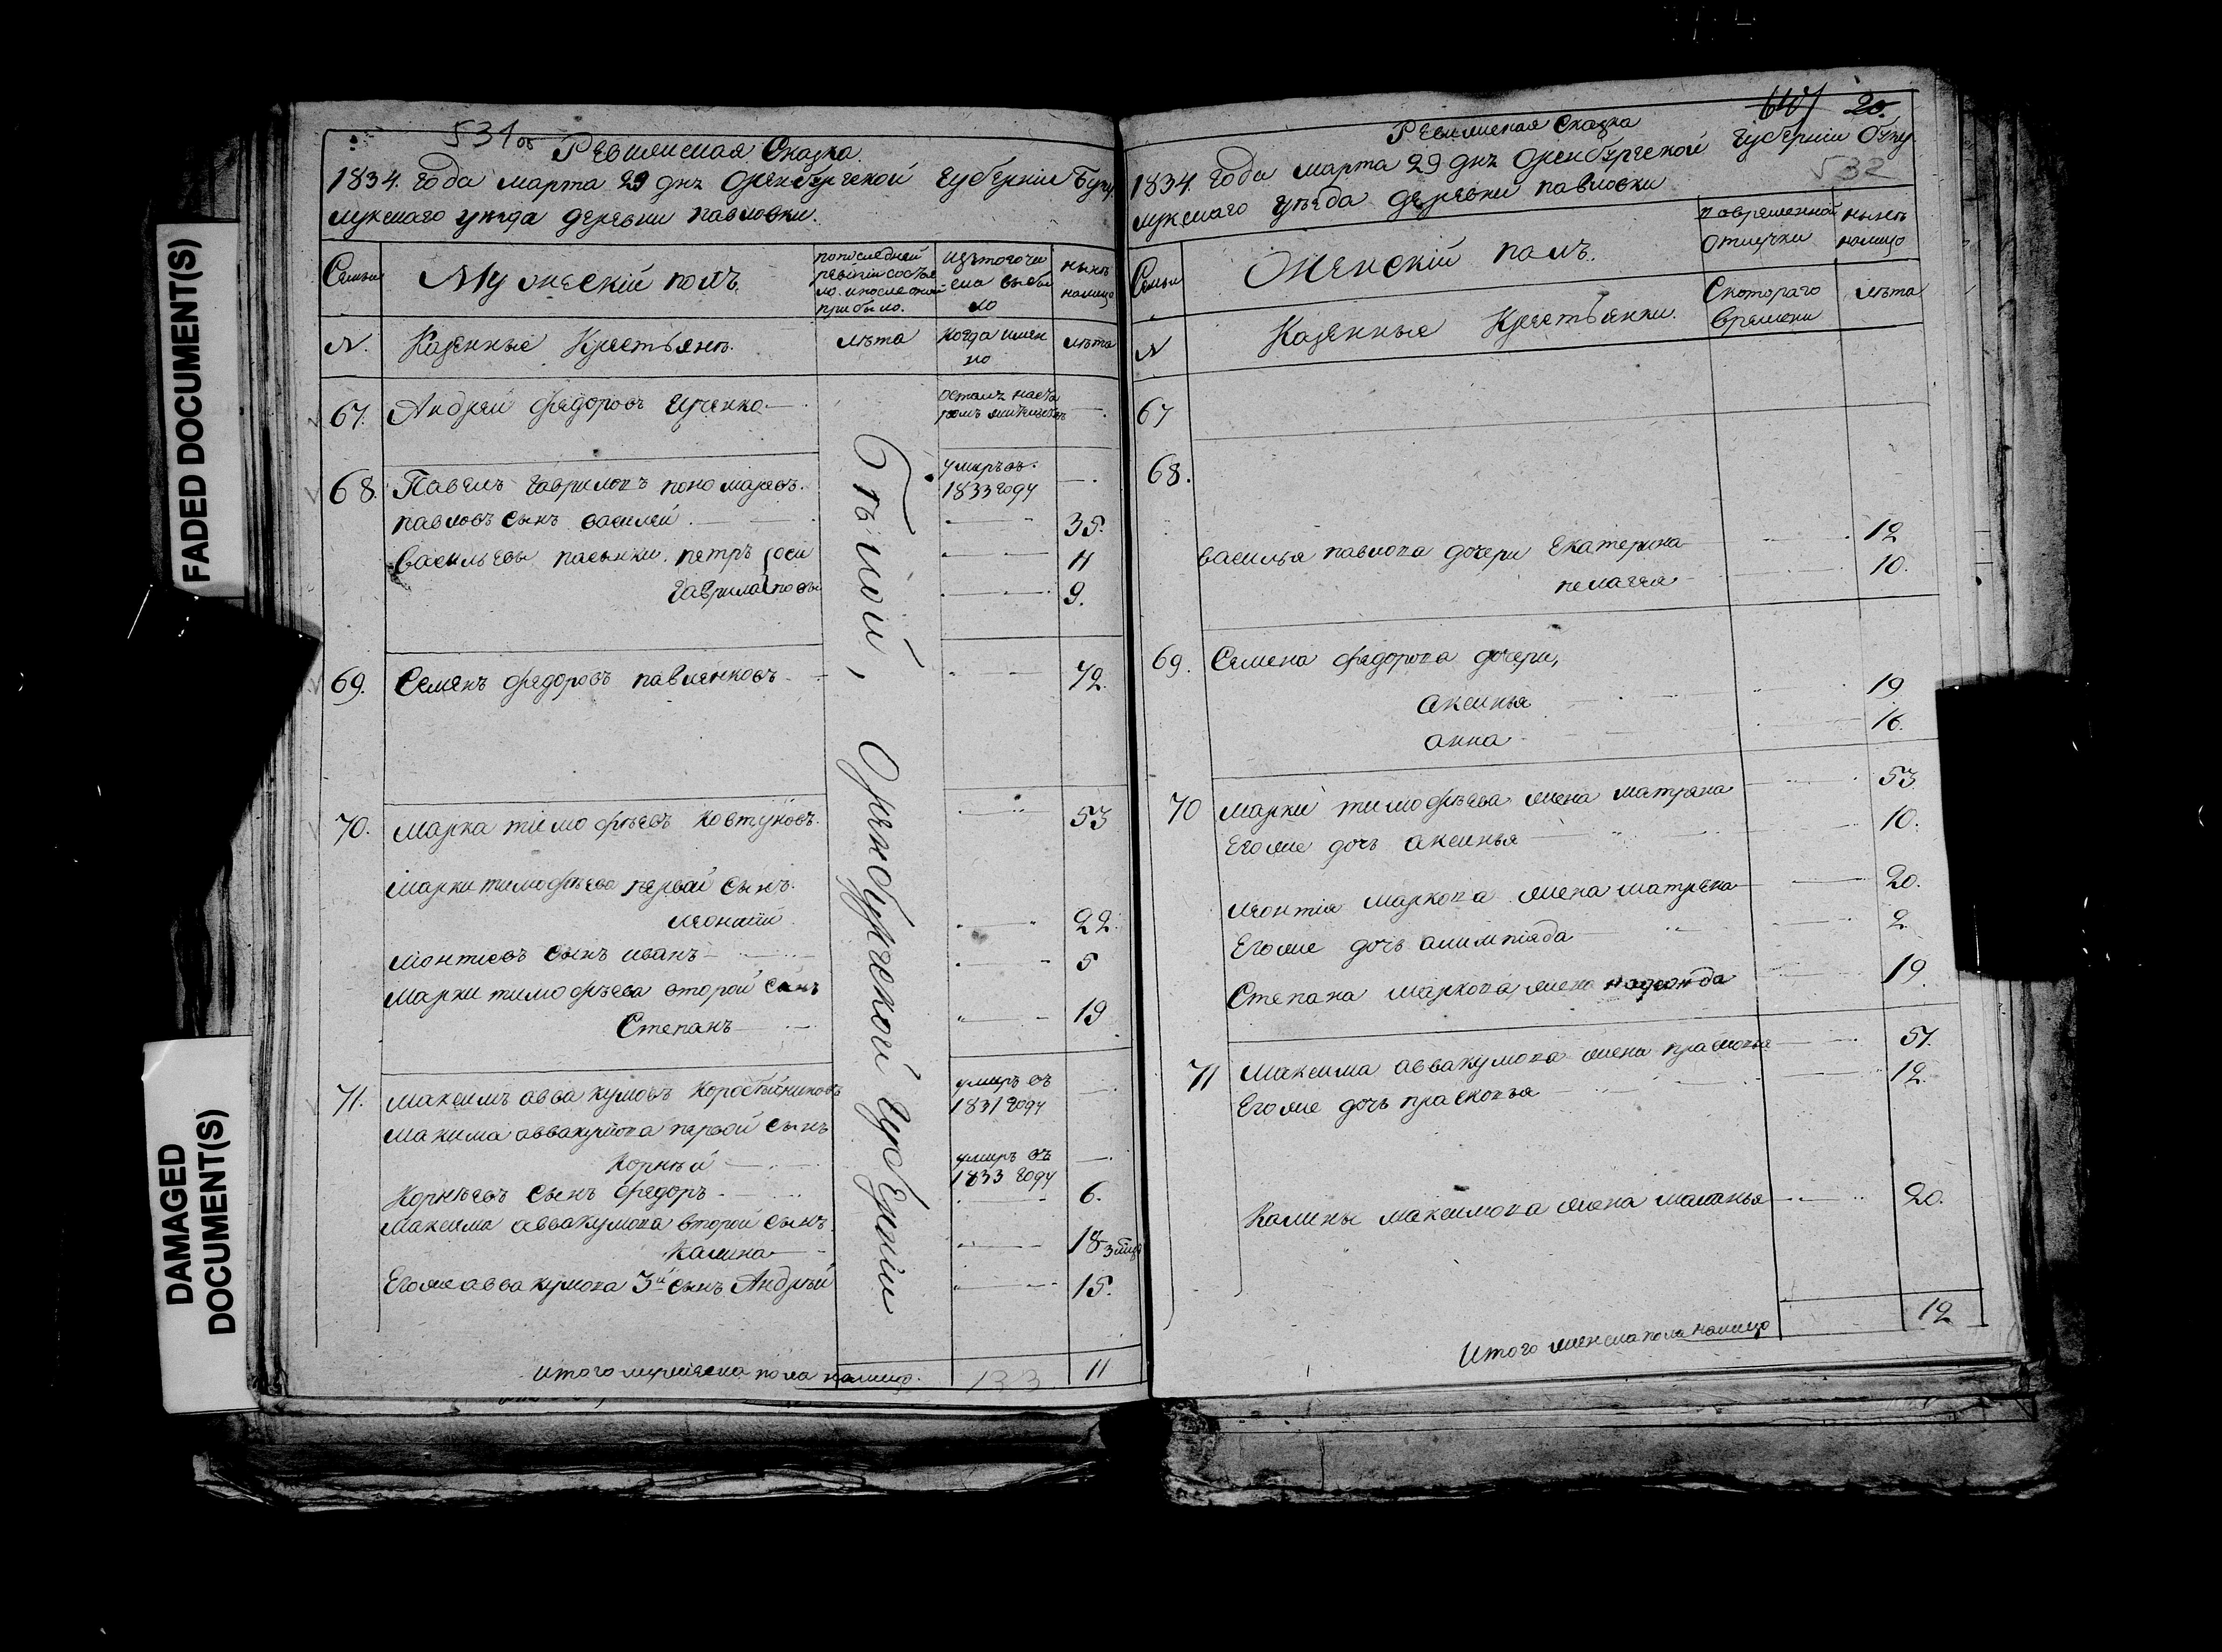 FADED DOCUMENT(S)
DAMAGED
DOCUMENT(S)
531 об
Ревизская Сказка
1834. года марта 29 дня Оренбургской губерніи Бугу
лукскаго уѣзда деревни павловки.
Семьи
Мужескій полъ.
по последней
ревизіи состоя
ло и после оной
прибыло.
изътого чи
сла выбы
ло
нынѣ
налицо
N.
Казенные Крестьянѣ.
лѣта
когда имен
но
лѣта
67. Андреи федоровъ Ищенко
68. Павелъ гавриловъ пономаревъ.
умеръ въ
1833 году
павловъ сынъ василей 35.
васильевы пасынки. петръ оси 11
гаврила повы 9.
69. Семенъ федоровъ павленковъ 72.
70. марка тимофѣевъ ковтуновъ. 53
марки тимофѣева первой сынъ
леонтій 22.
леонтіевъ сынъ иванъ 5
марки тимофѣева второй сынъ
Степанъ 19
71. максимъ аввакумовъ Коробейниковъ
умеръ въ
1831 году
макима аввакумова первой сынъ
Корнѣй
умеръ въ
1833 году
Корнѣевъ сынъ федоръ 6.
максима аввакумова второй сынъ
Калина 18
Егожеаввакумова 3й сынъ Андрѣй 15.
Оренбургской губерніи
итого мужеска пола налицо. 133 11
20.
Ревизская Сказка
1834. года марта 29 дня Оренбургской губерніи Бугу
532
лукскаго уѣзда деревни павловки
Семьи
Женскій полъ.
вовременной
отлучки
нынѣ
налицо
N
Казенные Крестьянки.
Скотораго
времени
лѣта
67
68.
василья павлова дочери Екатерина 12
пелагея 10.
69. Семена федорова дочери,
аксинья 19
анна 16.
70 марки тимофѣева жена матрена 53
Егоже дочь аксинья 10.
леонтія маркова жена матрена 20.
Егоже дочь алимпіяда 2
Степана маркова жена надежда 19.
71 максима аввакумова жена прасковья 51.
Егоже дочь прасковья 12.
Калины максимова жена маланья 20.
Итого женскапола налицо 12